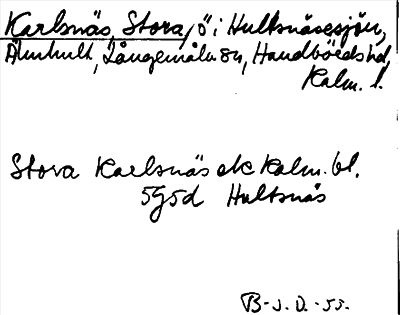 Karlsnäs, Stora, ö i Hultsnäsesjön,
Älmhult, Långemåla sn, Handbörds hd,
Kalm. l.
Stora Karlsnäs ek Kalm. bl.
5g5d Hultsnäs
B-s.D.-55.